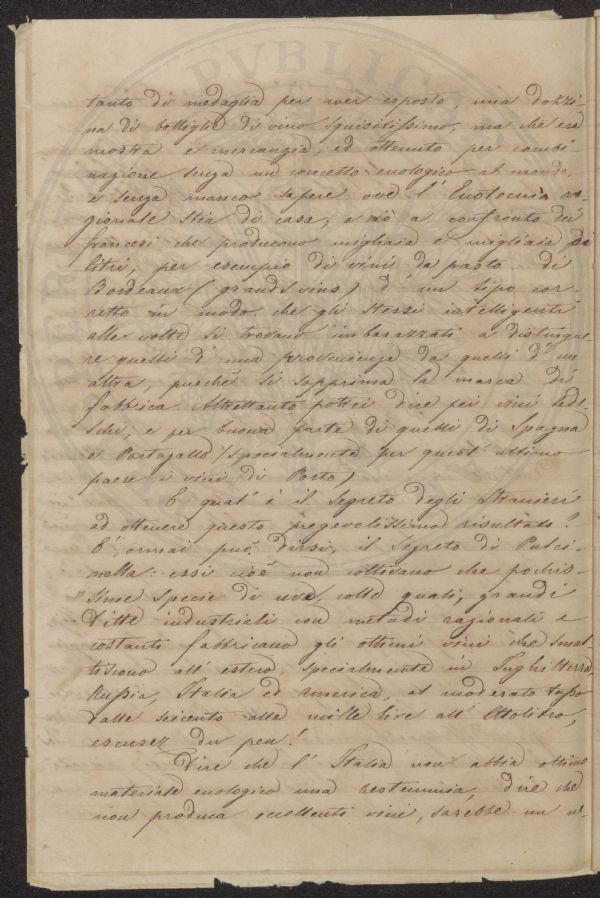 tanto di medaglia per aver esposto, una dozzi-
na di bottiglie di vino squisitissimo, ma che era
mostra e mercanzia, ed ottenuto per combi
nazione senza un concetto enologico al mondo,
e senza manco sapere ove l'Enotecnia ra-
gionale stia di casa, e ciò a confronto dei
francesi che producono migliaia e migliaia di
litri, per esempio di vini da pasto di
Bordeaux (grands vins) d'un tipo cor-
retto in modo che gli stessi intelligenti
alle volte si trovano imbarazzati a distingue-
re quelli d'una provenienza da quelli d'un
altra, purchè si sopprima la marca di
fabbrica. Altrettanto potrei dire pei vini tede-
schi, e per buona parte di quelli di Spagna
e Portogallo (specialmente per quest'ultimo
paese i vini di Porto)
E qual'è il segreto degli stranieri
ad ottenere questo pregevolissimo risultato?
È, ormai può dirsi, il segreto di Pulci-
nella: essi cioè non coltivano che pochis-
sime specie di uve, colle quali, grandi
Ditte industriali con metodi razionali e
costanti fabbricano gli ottimi vini che smal-
tiscono all'estero, specialmente in Inghilterra,
Russia, Italia ed America, al moderato tasso
dalle seicento alle mille lire all'Ettolitro,
escusez du peu!
Dire che l'Italia non abbia ottimo
materiale enologico una bestemmia, dire che
non produca eccellenti vini, sarebbe un